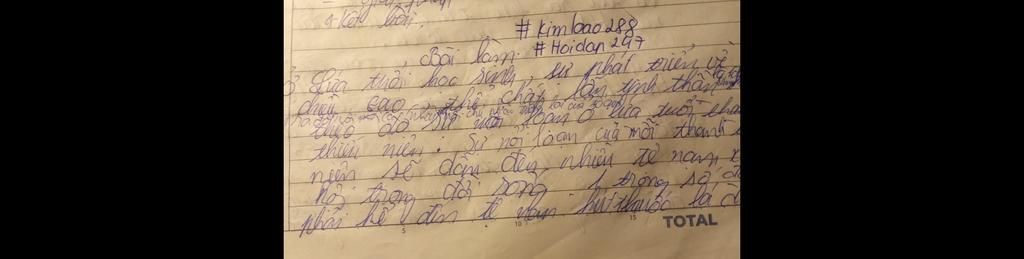 + Kết bài.
#kimbao288
Bài làm. #Hoidap247
Ở lứa tuổi học sinh, sự phát triển về
chiều cao, thể chất lẫn tinh thần
theo đó sự nổi loạn ở lứa tuổi thanh
thiếu niên. Sự nổi loạn của mỗi thanh
niên sẽ dẫn đến nhiều tệ nạn x
hội trong đời sống, 1 trong số
phải kể đến tệ nạn hút thuốc lá
5 10 15 TOTAL